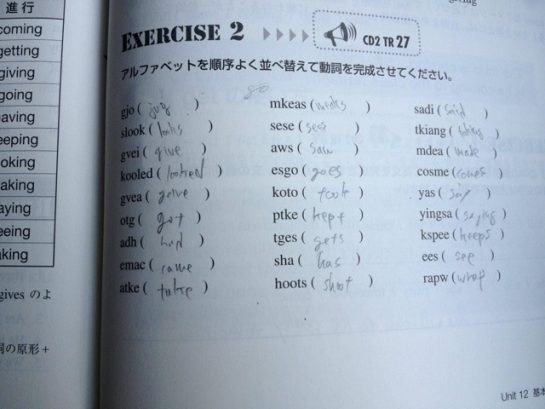 進行
coming
getting
giving
going
having
keeping
looking
making
saying
seeing
taking
gives のよ
詞の原形 +
EXERCISE 2 CD2 TR 27
アルファベットを順序よく並べ替えて動詞を完成させてください。
go
gjo ( ) mkeas ( ) sadi ( said )
slook ( looks ) sese ( sees ) tkiang ( )
gvei ( give ) aws ( saw ) mdea ( )
kooled ( looked ) esgo ( goes ) cosme ( comes )
gvea ( ) koto ( took ) yas ( say )
otg ( got ) ptke ( kept ) yingsa ( saying )
adh ( had ) tges ( gets ) kspee ( keeps )
emac ( came ) sha ( has ) ees ( see )
atke ( take ) hoots ( shoot ) rapw ( )
Unit 12 基本